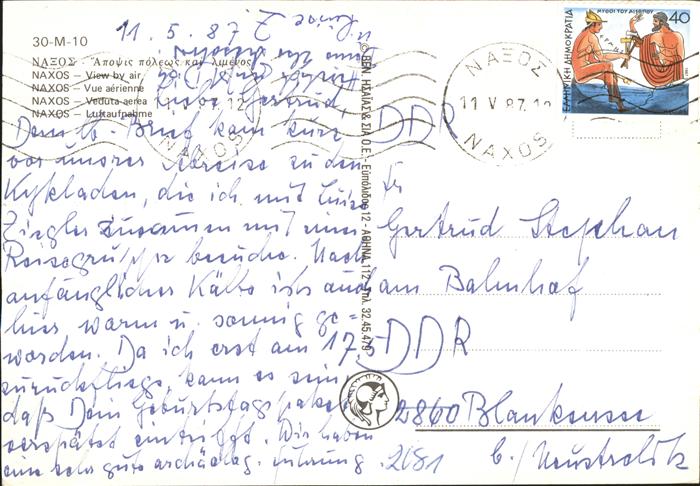 11.5.87
30-M-10
ΝΑΞΟΣ - Ἄποψις πόλεως καὶ λιμένος
NAXOS – View by air
NAXOS – Vue aérienne
NAXOS – Veduta aerea
NAXOS – Luftaufnahme
Liebe Gertrud,
Dein G.-Brief kam kurz
vor unserer Abreise zu den
Kykladen, die ich mit Luise
Ziegler zusammen mit einer
Reisegruppe besuche. Nach
anfänglicher Kälte ists auch
hier warm u. sonnig ge=
worden. Da ich erst am 17.5.
zurückfliege, kann es sein
daß Dein Geburtstagspaket
verspätet eintrifft. Wir haben
eine sehr gute archäolog. Führung.
© ΒΕΝ. ΗΣΑΪΑΣ & ΣΙΑ Ο.Ε. - Ευπόλιδος 12 - ΑΘΗΝΑ 112 - Τηλ. 32.45.479
ΜΥΘΟΙ ΤΟΥ ΑΙΣΩΠΟΥ
40
ΕΛΛΗΝΙΚΗ ΔΗΜΟΚΡΑΤΙΑ
ΝΑΞΟΣ
11 V 87.12
NAXOS
12
NAXOS
DDR
Fr
Gertrud Stephan
am Bahnhof
DDR
2860 Blankensee
b./Neustrelitz
2081